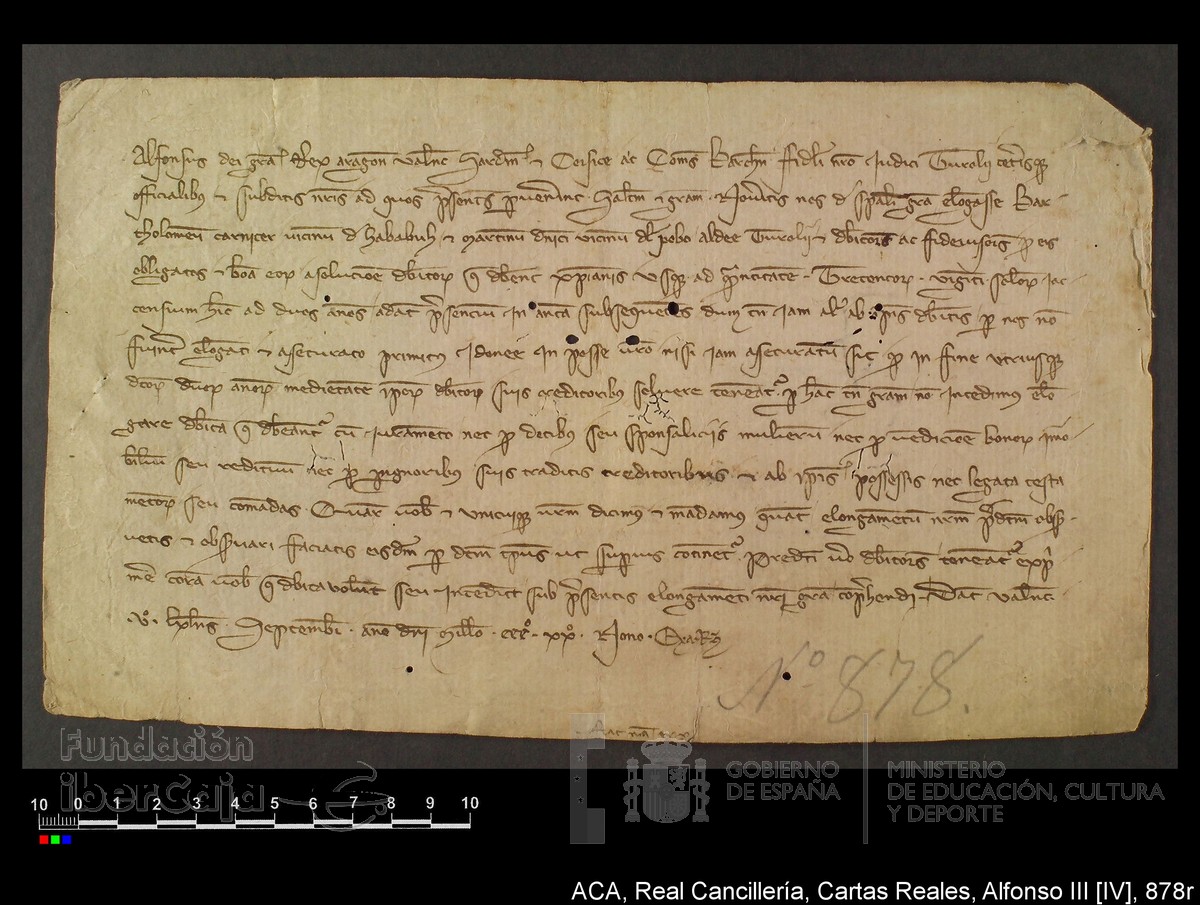 Alfonsus dei gra Rex aragon valenc Sardin et Corsice ac Comes Barchn fideli nro Judici Turolii ceterisque
officialibus et subditis nris ad quos presentes pervenerint Saltm et gram Noveritis nos de spali gra elongasse Bar
tholomeu carnicer vicinu d hababuh et martinu dnici vicinu dl pobo aldee Turolii et debitores ac fideiussores p eis
obligatos et bona eorum a solucioe debitor que debent xpianis usque ad quantitate Trecentor viginti solidor Jac
censium hinc ad duos annos a dat presenciu in antea subsequetes dum tn iam al ab ipis debitis p nos no
fuint elongati et assecurato primitus idonee in posse vro nisi iam asecuratu sit q in fine utriusque
dictor duor annor medietate ipor debitor suis creditoribus solvere teneat p hac tn gram no intedimus elo
gare debita que debeant cu iurameto nec p dotibus seu sponsaliciis mulieru nec p vendicioe bonor imo
biliu seu reditiuu nec p pignoribus suis traditis creditoribus et ab ipis possessis nec legata testa
mentor seu comadas Quar vob et unicuique vrm dicimus et madamus quat elongametu nrm pdcm obser
vetis et observari faciatis eisdm p dcm tpus ut superius cotinet Predcti vo debitores teneat expri
me cora vob q debita volunt seu intedunt sub presentis elongameti nri gra coprehendi Dat valenc
v kalns Septembr ano dni millo ccc xx Nono
Nº 878.
Fundación
iberCaja
GOBIERNO
DE ESPAÑA
MINISTERIO
DE EDUCACIÓN, CULTURA
Y DEPORTE
10 0 1 2 3 4 5 6 7 8 9 10
ACA, Real Cancillería, Cartas Reales, Alfonso III [IV], 878r